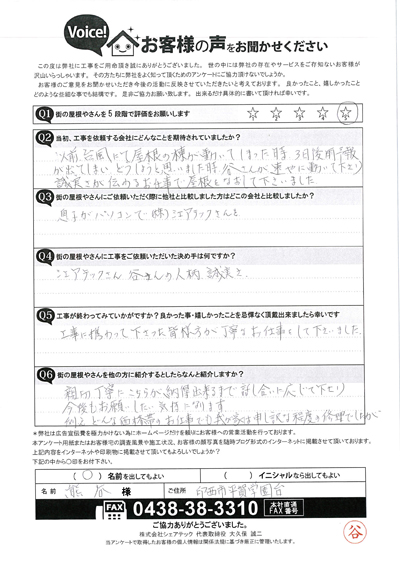 Voice!
お客様の声をお聞かせください
この度は弊社に工事をご用命頂き誠にありがとうございました。世の中には弊社の存在やサービスをご存知ないお客様が
沢山いらっしゃいます。その方たちに弊社をよく知って頂くためのアンケートにご協力頂けないでしょうか。
お客様のご意見をお聞かせいただき今後の活動に反映させていただきたいと考えております。良かったこと、嬉しかったこと
どのような些細な事でも結構です。是非ご協力お願い致します。出来るだけ具体的に書いて頂ければ幸いです。
Q1 街の屋根やさんを5段階で評価をお願いします
Q2 当初、工事を依頼する会社にどんなことを期待されていましたか?
以前台風にて屋根の棟が動いてしまった時、3日後雨予報
が出てしまい どうしようと思いました時 谷さんが速やかに動いて下さり
誠実さが伝わるお仕事で屋根をなおして下さいました
Q3 街の屋根やさんにご依頼いただく際に他社と比較しました方はどこの会社と比較しましたか?
息子がパソコンで(株)シェアテックさんを
Q4 街の屋根やさんに工事をご依頼いただいた決め手は何ですか?
シェアテックさん 谷さんの人柄、誠実さ
Q5 工事が終わってみていかがですか?良かった事・嬉しかったことを忌憚なく頂戴出来ましたら幸いです
工事に携わって下さった皆様方が丁寧なお仕事をして下さいました。
Q6 街の屋根やさんを他の方に紹介するとしたらなんと紹介しますか?
親切丁寧にこちらが納得出来るまで話し合いに応じて下さり
今後もお願いしたい気持になります
※弊社は広告宣伝費を極力かけない為にホームページだけを頼りにお客様への営業活動を行っております。
本アンケート用紙またはお客様宅の調査風景や施工状況、お客様の顔写真を随時ブログ形式のインターネットに掲載させて頂いております。
上記内容をインターネットや印刷物に掲載させて頂いてもよろしいでしょうか?
下記の中から○印をお付下さい。
(○)名前を出してもよい ( )イニシャルなら出してもよい
名前 熊谷 様 ご住所 印西市平賀学園台
FAX 0438-38-3310 本社直通FAX番号
ご協力ありがとうございました。
株式会社シェアテック 代表取締役 大久保 誠二
当アンケートで取得したお客様の個人情報は関係法規に基づき厳正に管理いたします。
谷